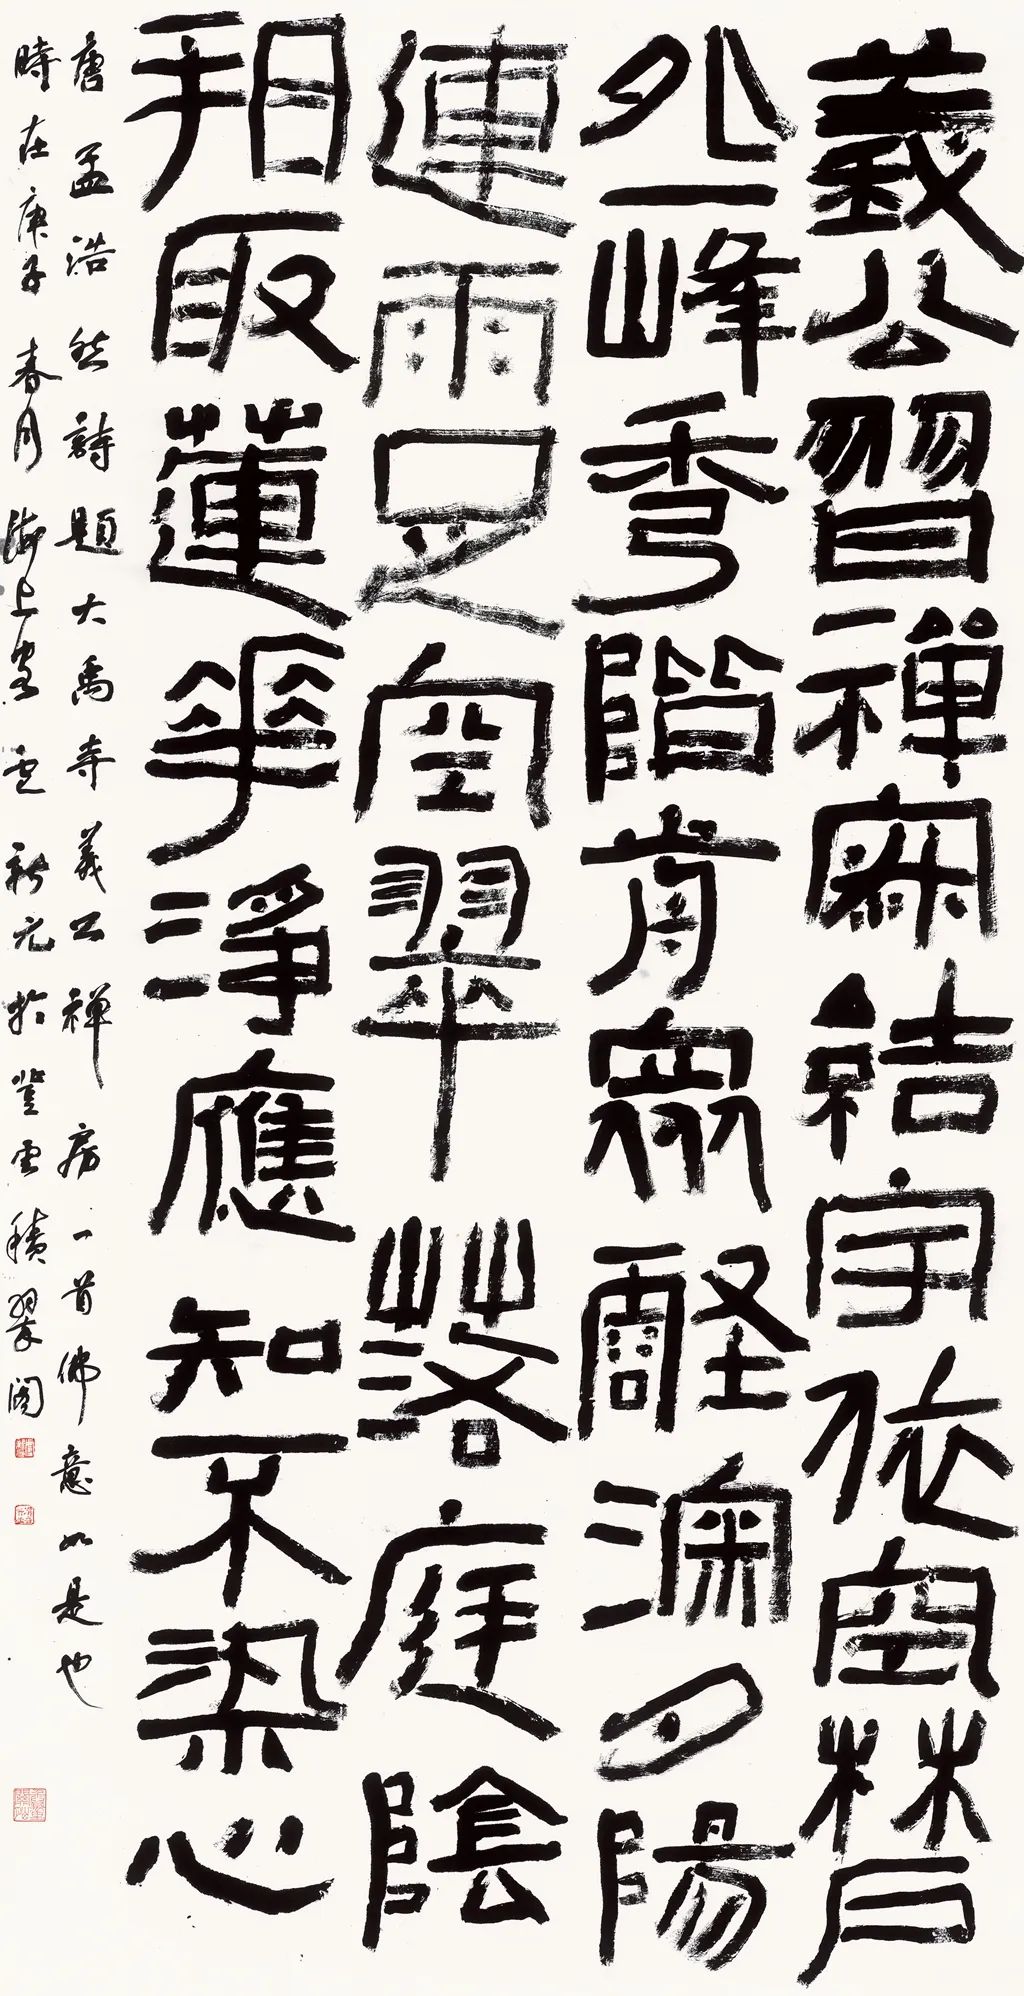 義公習禪寂結宇依空林戶
外一峰秀階前眾壑深夕陽
連雨足空翠落庭陰
看取蓮華淨應知不染心
唐孟浩然詩題大禹寺義公禪房一首佛意如是也
時在庚子春月海上新元於登雲積翠閣